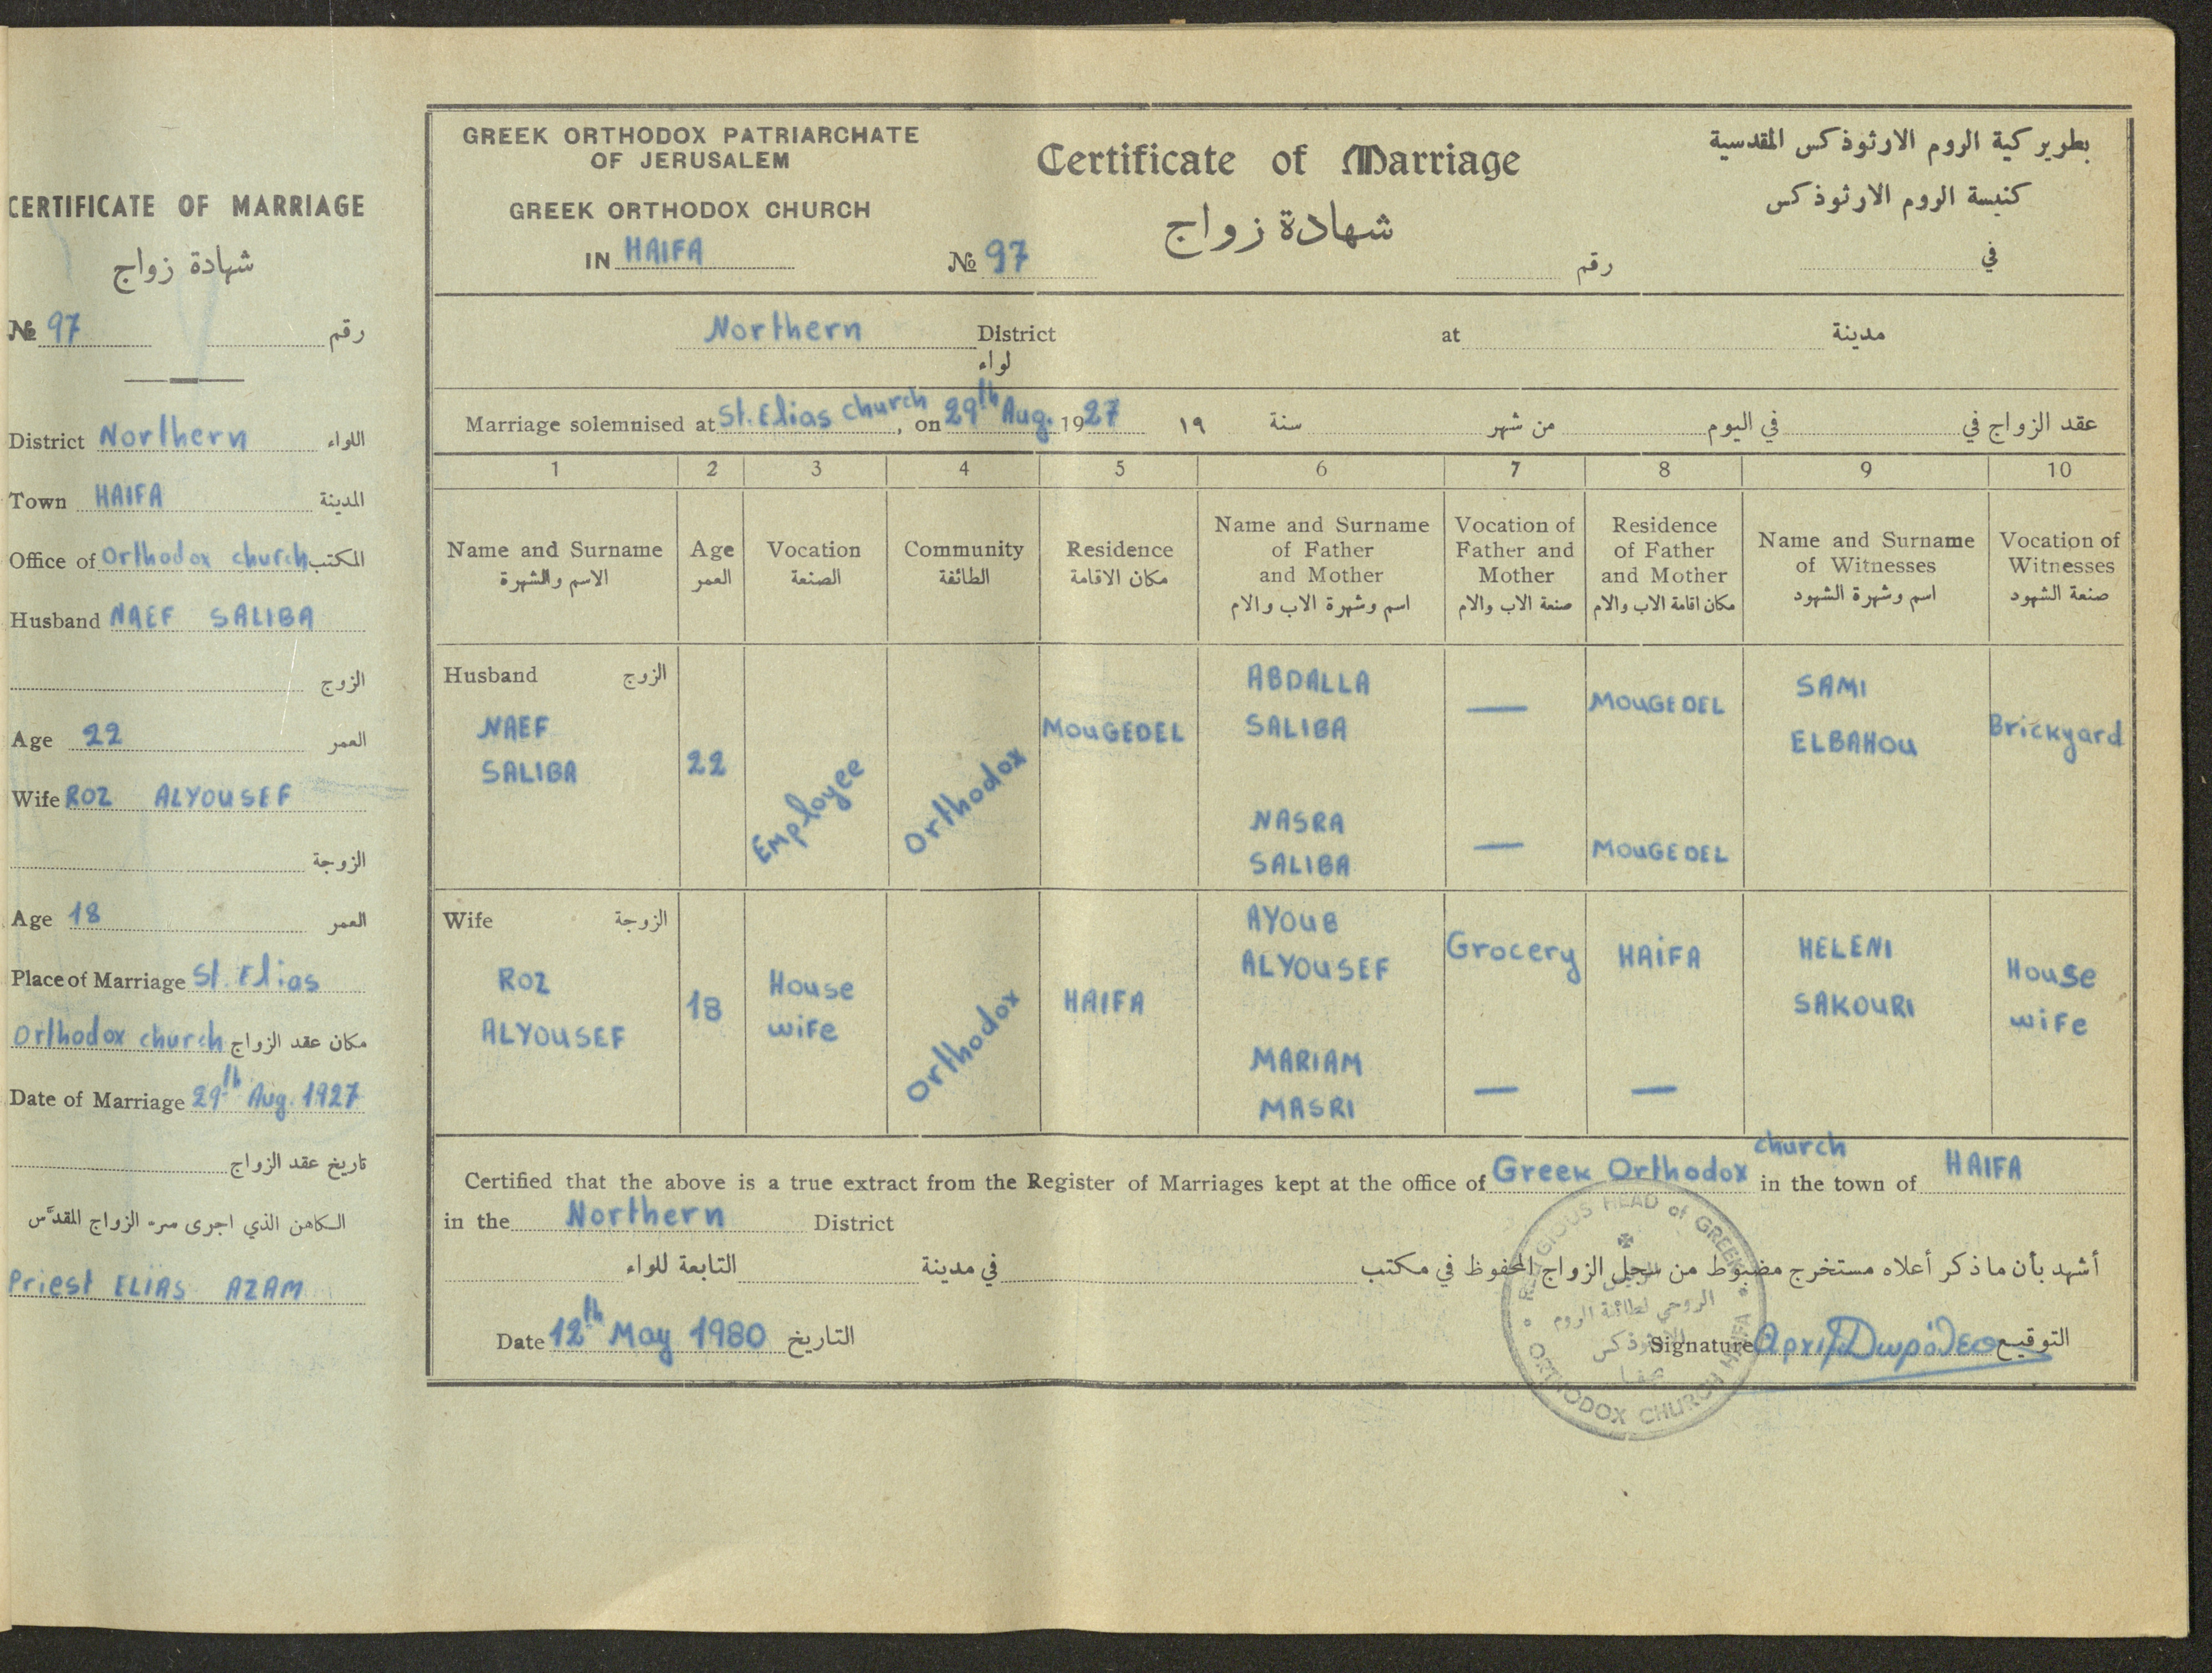 CERTIFICATE OF MARRIAGE
شهادة زواج
№ 97 رقم
District Northern اللواء
Town HAIFA المدينة
Office of Orthodox church المكتب
Husband NAEF SALIBA
الزوج
Age 22 العمر
Wife ROZ ALYOUSEF
الزوجة
Age 18 العمر
Place of Marriage St. Elias
Orthodox church مكان عقد الزواج
Date of Marriage 29th Aug. 1927
تاريخ عقد الزواج
الكاهن الذي اجرى سر الزواج المقدّس
Priest ELIAS AZAM
GREEK ORTHODOX PATRIARCHATE
OF JERUSALEM
GREEK ORTHODOX CHURCH
IN HAIFA
Certificate of Marriage
شهادة زواج
№ 97 رقم
بطريركية الروم الارثوذكس المقدسية
كنيسة الروم الارثوذكس
في
Northern District at مدينة
لواء
Marriage solemnised at St. Elias church, on 29th Aug. 1927 عقد الزواج في في اليوم من شهر سنة ١٩
1 2 3 4 5 6 7 8 9 10
Name and Surname
الاسم والشهرة
Age
العمر
Vocation
الصنعة
Community
الطائفة
Residence
مكان الاقامة
Name and Surname
of Father
and Mother
اسم وشهرة الاب والام
Vocation of
Father and
Mother
صنعة الاب والام
Residence
of Father
and Mother
مكان اقامة الاب والام
Name and Surname
of Witnesses
اسم وشهرة الشهود
Vocation of
Witnesses
صنعة الشهود
Husband الزوج
NAEF
SALIBA
22
Employee
Orthodox
MOUGEDEL
ABDALLA
SALIBA
—
MOUGEDEL
NASRA
SALIBA
—
MOUGEDEL
SAMI
ELBAHOU
Brickyard
Wife الزوجة
ROZ
ALYOUSEF
18
House
wife
Orthodox
HAIFA
AYOUB
ALYOUSEF
Grocery
HAIFA
MARIAM
MASRI
—
—
HELENI
SAKOURI
House
wife
Certified that the above is a true extract from the Register of Marriages kept at the office of Greek Orthodox church in the town of HAIFA
in the Northern District
أشهد بأن ما ذكر أعلاه مستخرج مضبوط من سجل الزواج المحفوظ في مكتب في مدينة التابعة للواء
Date 12th May 1980 التاريخ
Signature Αρχιμ Δωρόθεος التوقيع
RELIGIOUS HEAD of GREEK
ORTHODOX CHURCH HAIFA
الروحي لطائفة الروم
الارثوذكس
حيفا